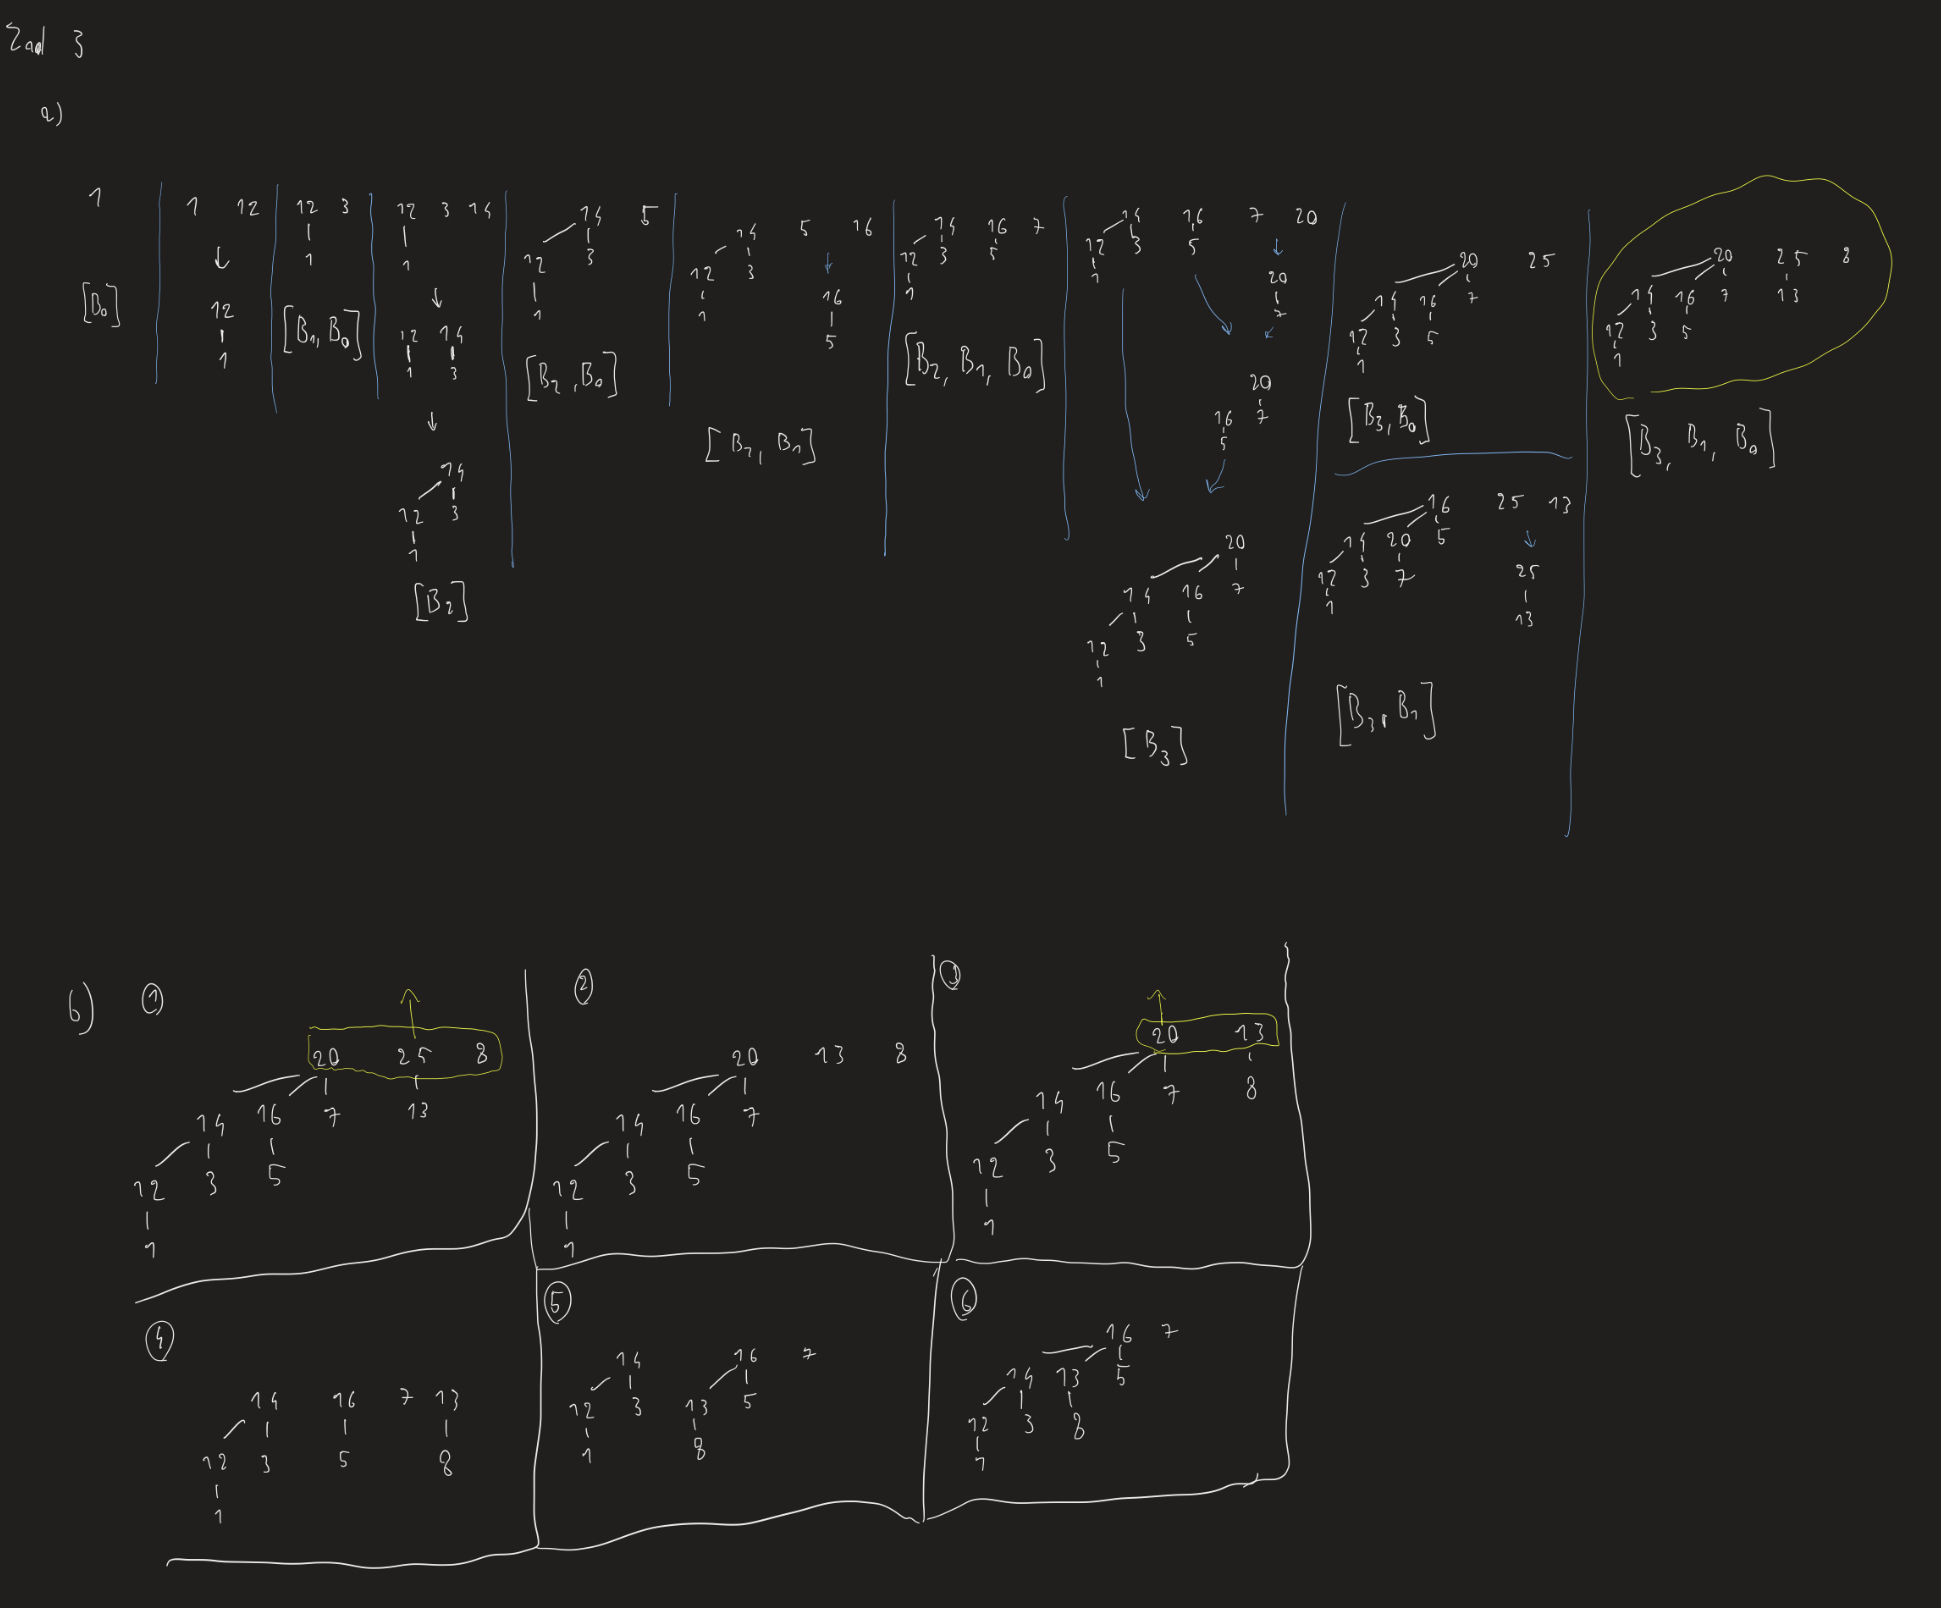 Zad 3
a)
1
[B₀]
1 12
12
1
12 3
1
[B₁, B₀]
12 3 14
1
12 14
1 3
14
12 3
1
[B₂]
14 5
12 3
1
[B₂, B₀]
14 5 16
12 3
1
16
5
[B₂, B₁]
14 16 7
12 3 5
1
[B₂, B₁, B₀]
14 16 7 20
12 3 5
1
20
7
20
16 7
5
20
14 16 7
12 3 5
1
[B₃]
20 25
14 16 7
12 3 5
1
[B₃, B₀]
16 25 13
14 20 5
12 3 7
1
25
13
[B₃, B₁]
20 25 8
14 16 7 13
12 3 5
1
[B₃, B₁, B₀]
b)
①
20 25 8
14 16 7 13
12 3 5
1
②
20 13 8
14 16 7
12 3 5
1
③
20 13
14 16 7 8
12 3 5
1
④
14 16 7 13
12 3 5 8
1
⑤
14 16 7
12 3 13 5
1 8
⑥
16 7
14 13 5
12 3 8
1